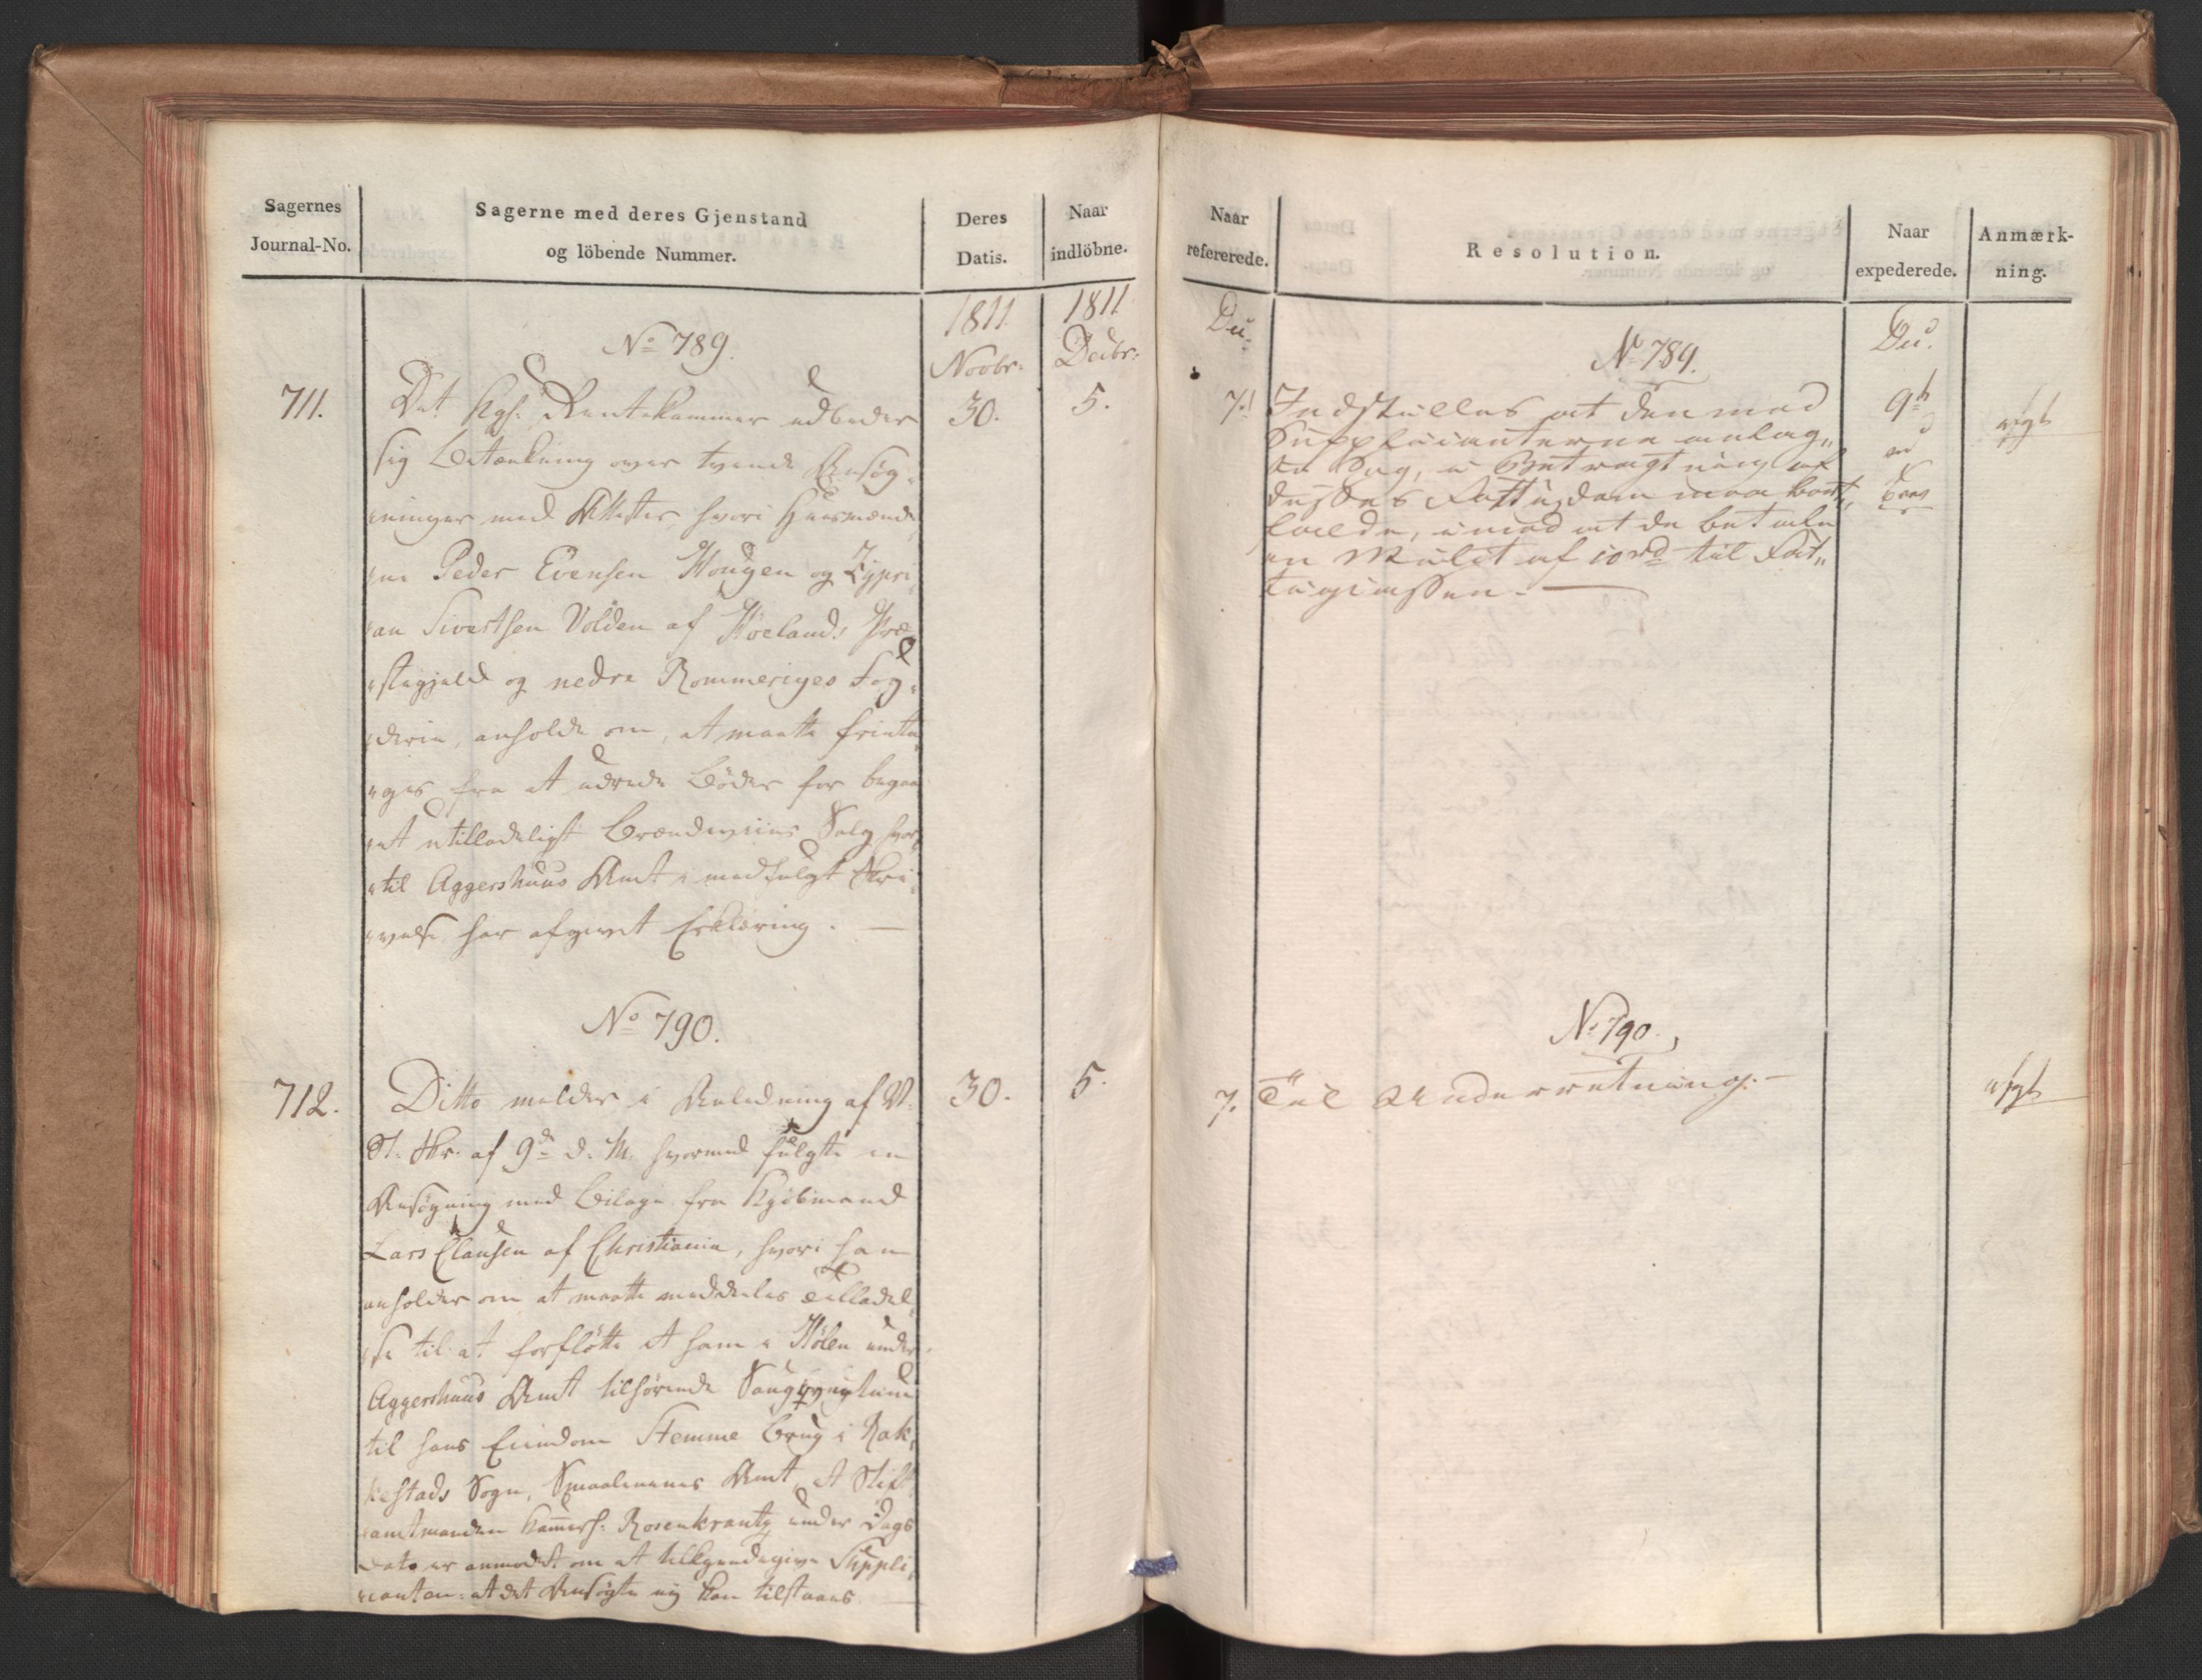 Sagernes
Journal-No.
Sagerne med deres Gjenstand
og löbende Nummer.
Deres
Datis.
Naar
indlöbne.
1811
Novbr:
1811
Decbr:
No 789.
711.
Det Kgl: Rentekammer udbeder
sig Betænkning over tvende Ansøg„
„ninger med Attester, hvori Huusmænde„
„ne Peder Evensen Hougen og Zypri„
„an Sivertsen Volden af Høelands Præ„
„stegjeld og nedre Rommeriges Fog„
„derie, anholde om, at maatte frieta„
„ges fra at udrede Bøder for begaa„
„et utilladeligt Brændeviins Salg, hvor„
„til Aggershuus Amt i medfulgt Skri„
„velse har afgivet Erklæring. —
30.
5.
No 790.
712.
Ditto melder i Anledning af
St. Skr. af 9de d. M. hvormed fulgte en
Ansøgning med Bilage fra Kjøbmand
Lars Clausen af Christiania, hvori han
anholder om at maatte meddeles Tilladel„
„se til at forflötte et ham i Hölen under
Aggershuus Amt tilhørende
til hans Eiendom Stemme Brug i Rak„
kestads Sogn, Smaalenenes Amt, at Stift„
„amtmanden Kammerh: Rosenkrantz under Dags
Dato er anmodet om at tilkjendegive Suppli„
„canten: at det Ansøgte ej kan tilstaaes. —
30.
5.
Naar
refererede.
Resolution.
Naar
expederede.
Anmærk-
ning.
No 789.
7.
Indstilles at den mod
Supplicanterne anlag„
te Sag, i Betragtning af
disses Fattigdom maa bort„
falde, imod at de betale
en Mulct af 10 rd til Fat„
tigcassen. —
9de
No 790.
7.
Til Underretning. —